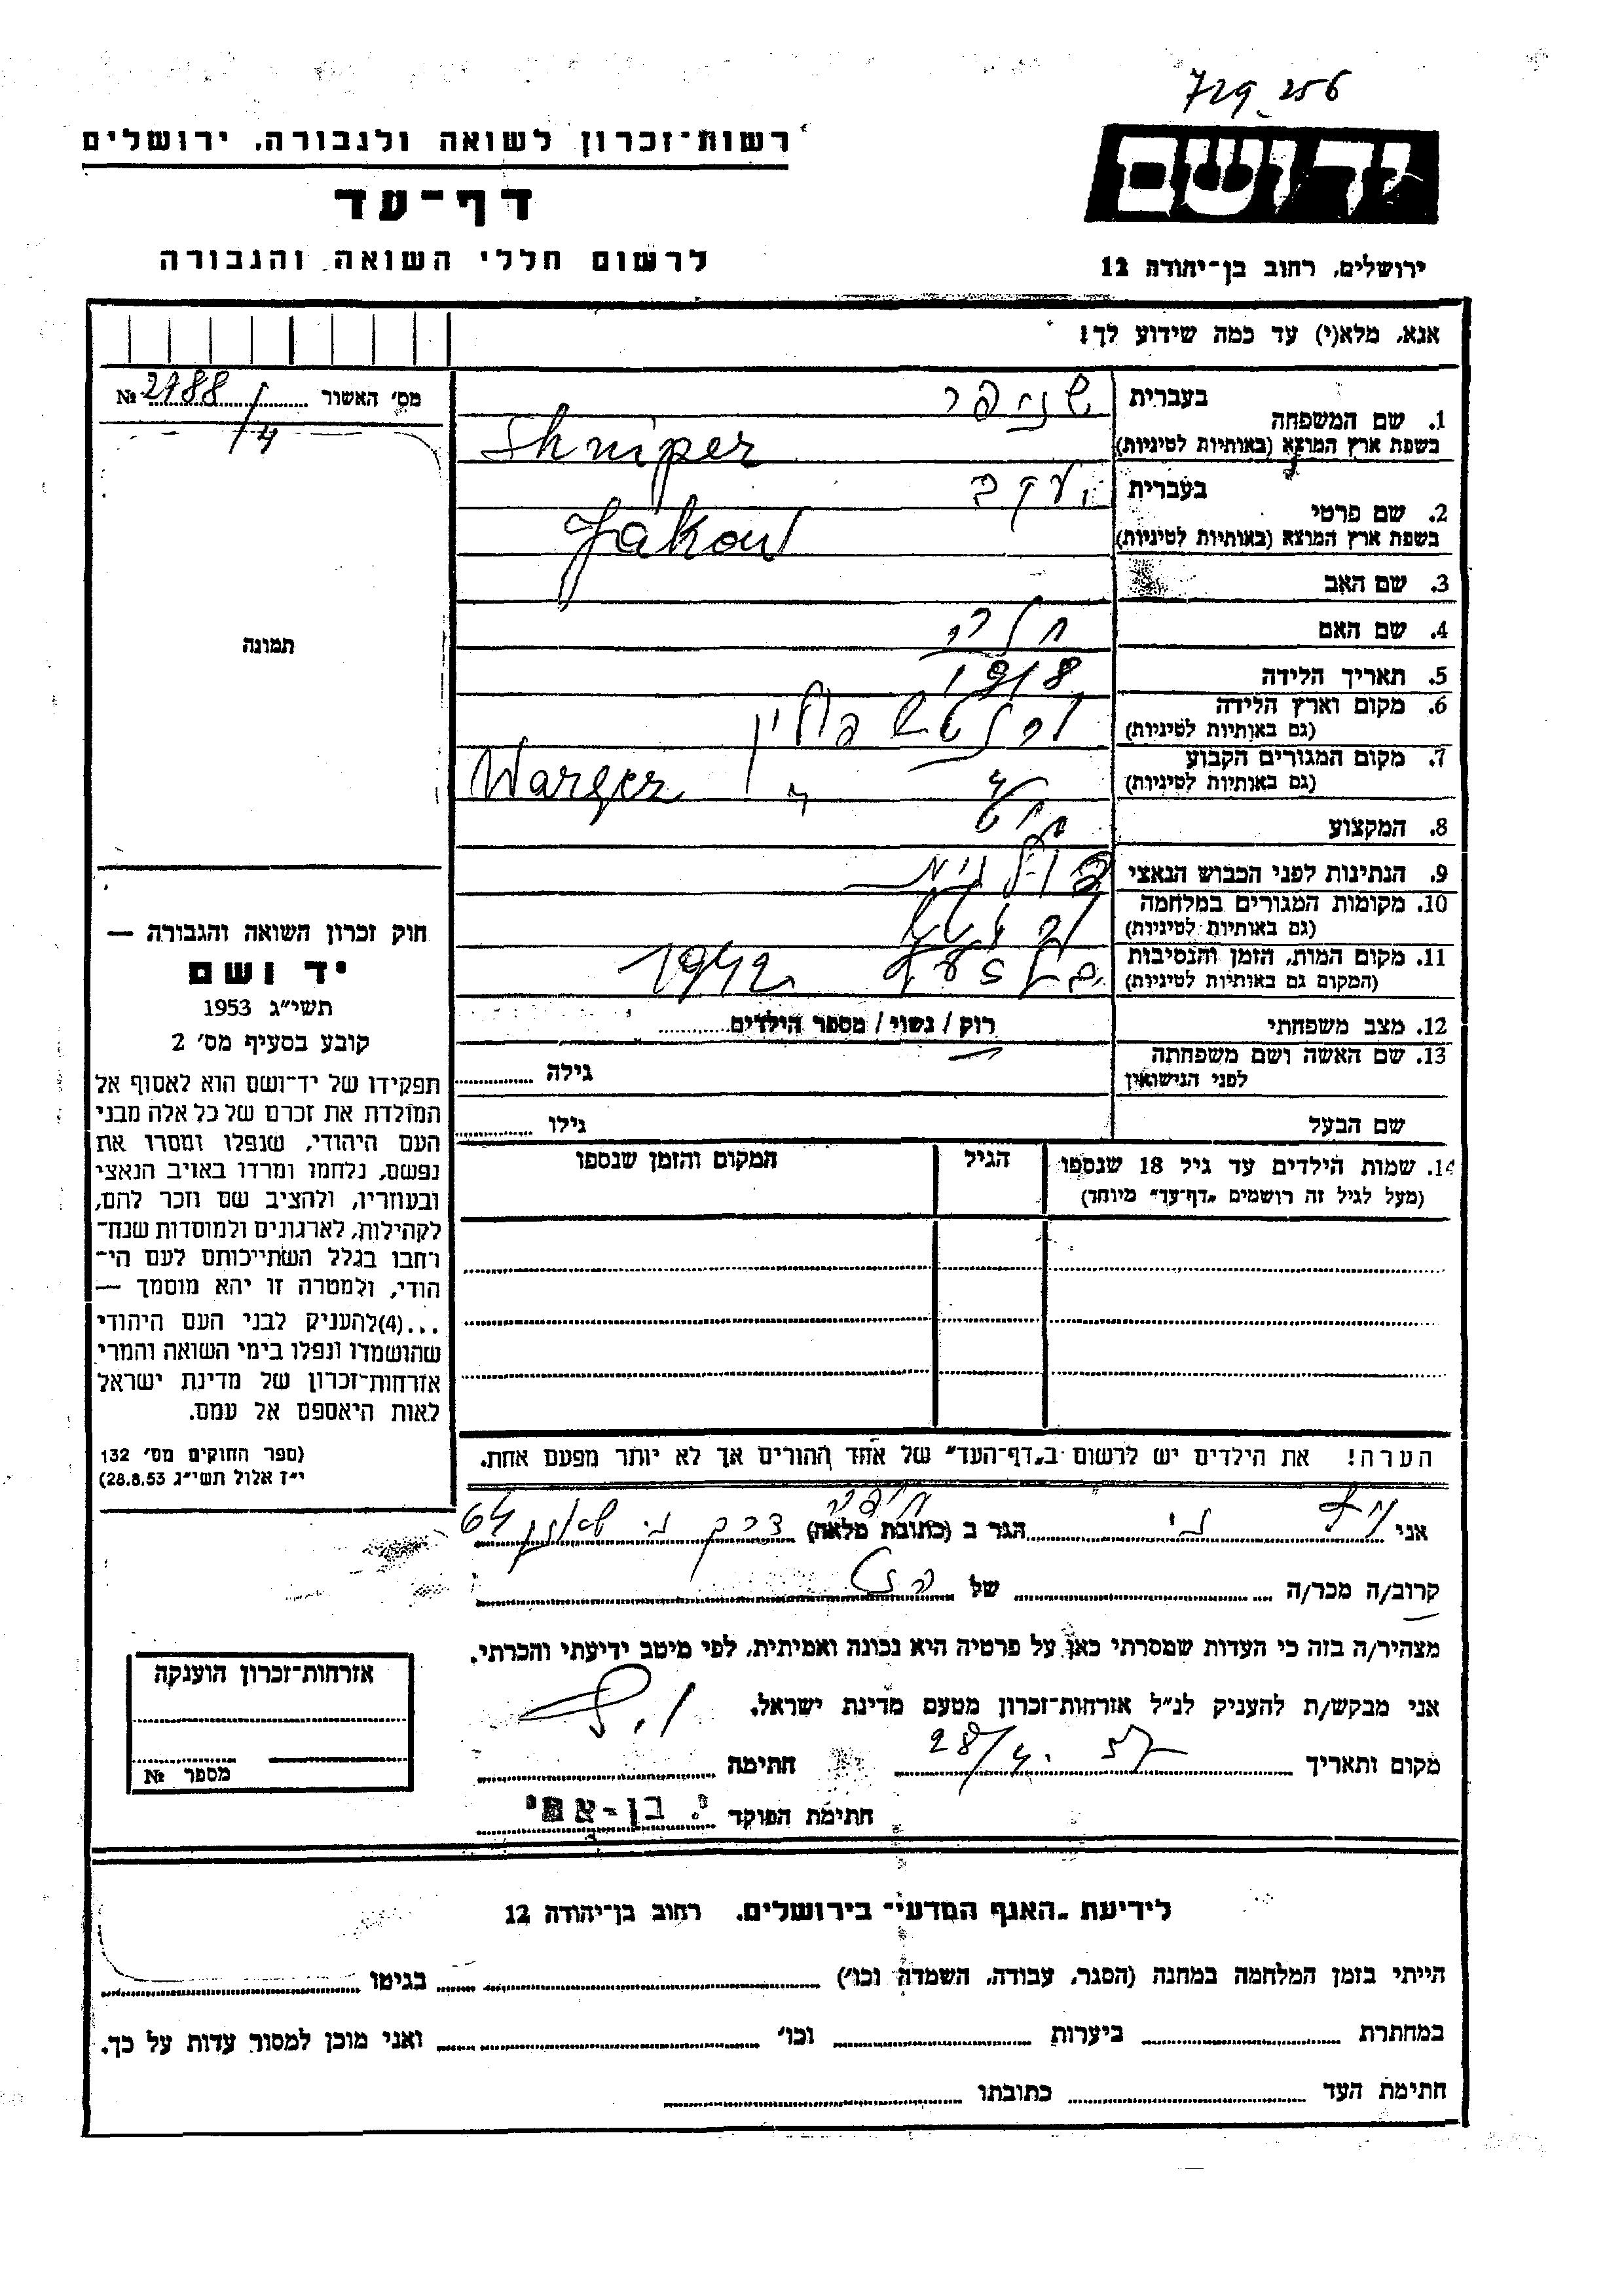 729 256
יד ושם
ירושלים, רחוב בן־יהודה 12
רשות־זכרון לשואה ולגבורה, ירושלים
דף־עד
לרשום חללי השואה והגבורה
אנא, מלא(י) עד כמה שידוע לך!
מס' האשור № 2988/4
תמונה
1. שם המשפחה
בעברית שניפר
בשפת ארץ המוצא (באותיות לטיניות) Shniper
2. שם פרטי
בעברית יעקב
בשפת ארץ המוצא (באותיות לטיניות) Jakow
3. שם האב
4. שם האם חיה
5. תאריך הלידה 1918
6. מקום וארץ הלידה פולין
(גם באותיות לטיניות)
7. מקום המגורים הקבוע
(גם באותיות לטיניות)
8. המקצוע
9. הנתינות לפני הכבוש הנאצי
10. מקומות המגורים במלחמה
(גם באותיות לטיניות)
11. מקום המות, הזמן והנסיבות 1942
(המקום גם באותיות לטיניות)
12. מצב משפחתי רוק / נשוי / מספר הילדים
13. שם האשה ושם משפחתה
לפני הנישואין גילה
שם הבעל גילו
14. שמות הילדים עד גיל 18 שנספו הגיל המקום והזמן שנספו
(מעל לגיל זה רושמים „דף־עד" מיוחד)
הערה! את הילדים יש לרשום ב„דף־העד" של אחד ההורים אך לא יותר מפעם אחת.
חוק זכרון השואה והגבורה —
יד ושם
תשי"ג 1953
קובע בסעיף מס' 2
תפקידו של יד־ושם הוא לאסוף אל
המולדת את זכרם של כל אלה מבני
העם היהודי, שנפלו ומסרו את
נפשם, נלחמו ומרדו באויב הנאצי
ובעוזריו, ולהציב שם וזכר להם,
לקהילות, לארגונים ולמוסדות שנח־
רחבו בגלל השתייכותם לעם הי־
הודי, ולמטרה זו יהא מוסמך —
...(4)להעניק לבני העם היהודי
שהושמדו ונפלו בימי השואה והמרי
אזרחות־זכרון של מדינת ישראל
לאות היאספם אל עמם.
(ספר החוקים מס' 132
י"ז אלול תשי"ג 28.8.53)
אני הגר ב (כתובת מלאה) חיפה דרך 64
קרוב/ה מכר/ה של
מצהיר/ה בזה כי העדות שמסרתי כאן על פרטיה היא נכונה ואמיתית, לפי מיטב ידיעתי והכרתי.
אני מבקש/ת להעניק לנ"ל אזרחות־זכרון מטעם מדינת ישראל.
מקום ותאריך 28/4. 57 חתימה
חתימת הפוקד י. בן-אמי
אזרחות־זכרון הוענקה
מספר №
לידיעת „האגף המדעי" בירושלים, רחוב בן־יהודה 12
הייתי בזמן המלחמה במחנה (הסגר, עבודה, השמדה וכו') בגיטו
במחתרת ביערות וכו' ואני מוכן למסור עדות על כך.
חתימת העד כתובתו